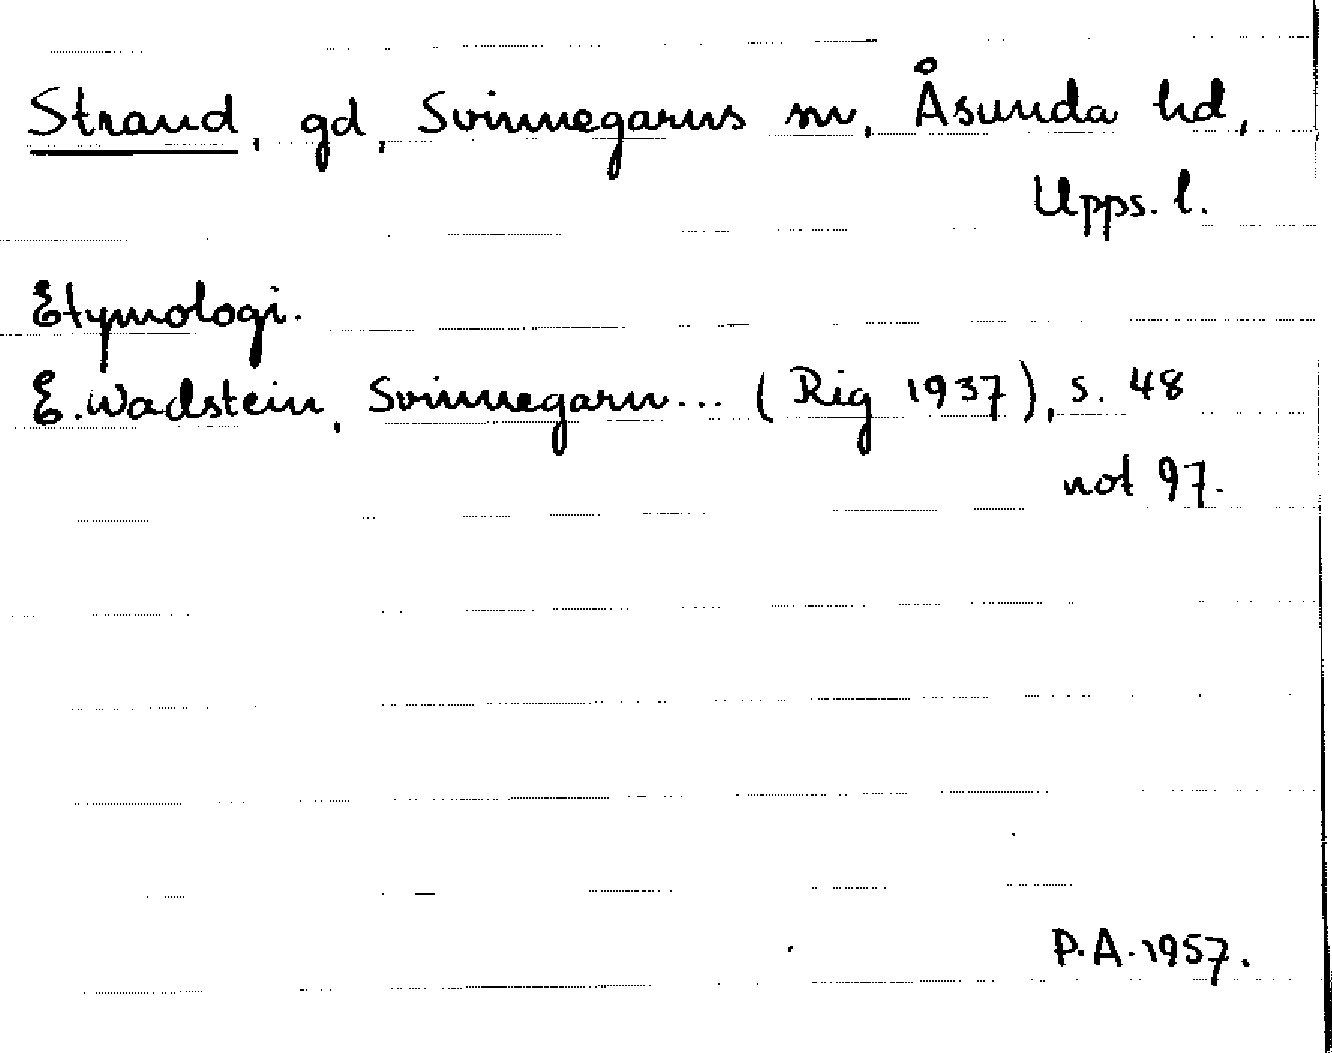 Strand, gd, Svinnegarns sn, Åsunda hd,
Upps. l.
Etymologi.
E. Wadstein, Svinnegarn... (Rig 1937), s. 48
not 97.
P.A. 1957.